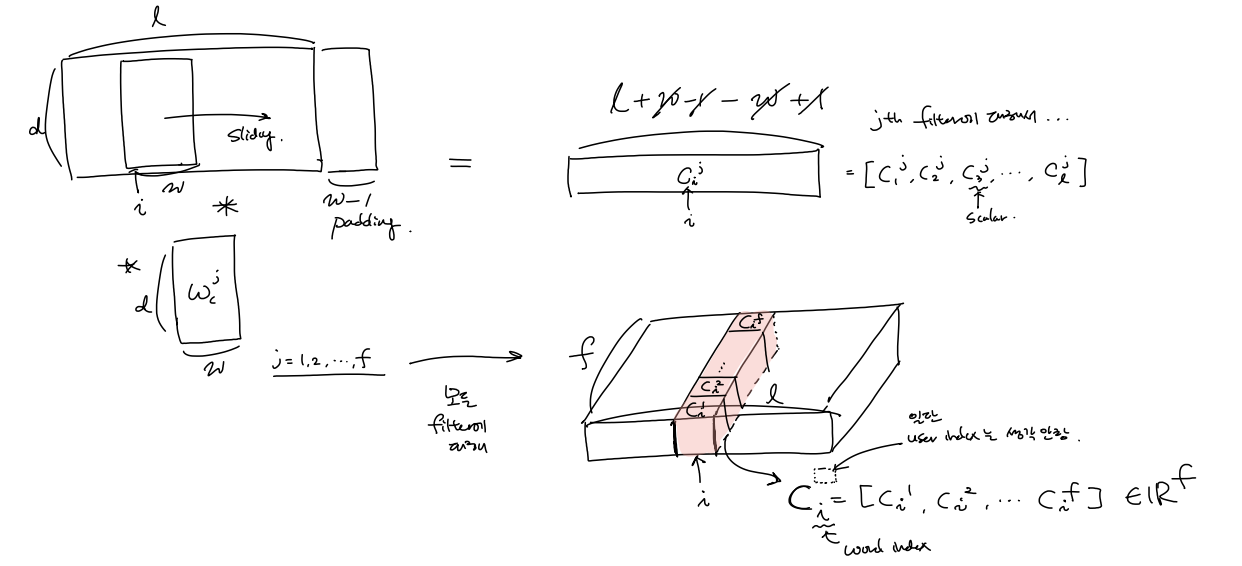 l
d
sliding.
i
w
*
w-1
padding.
*
d
W_c^j
w
j = 1, 2, ..., f
=
l + w - 1 - w + 1
C_i^j
i
j-th filter에 관해서 ...
= [C_1^j, C_2^j, C_3^j, ..., C_l^j]
scalar.
모든
filter에
관해
f
C_i^f
⋮
C_i^2
C_i^1
l
i
일단
user index는 생각 안함.
C_i = [C_i^1, C_i^2, ... C_i^f] ∈ ℝ^f
word index